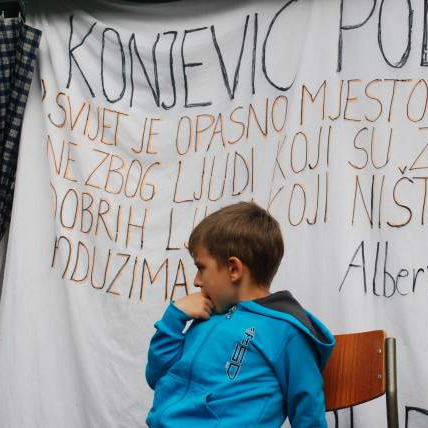 KONJEVIĆ POL
SVIJET JE OPASNO MJESTO
NE ZBOG LJUDI KOJI SU Z
DOBRIH LJ KOJI NIŠT
NDUZIMA
Alber